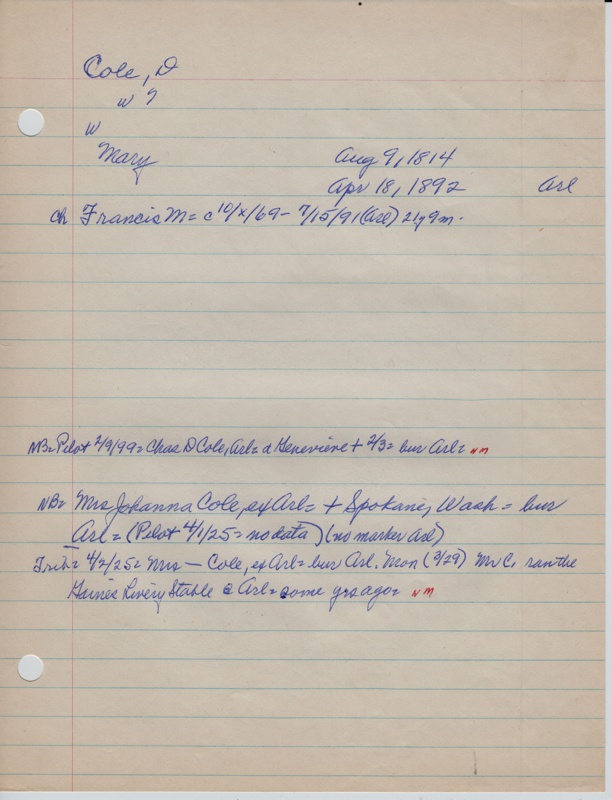 Cole, D
w ?
w
Mary Aug 9, 1814
Apr 18, 1892 Arl
ch Francis M = c 10/x/69 - 7/15/91 (Arl) 21y 9m.
NB = Pilot 2/9/99 = Chas D Cole, Arl = d Genevieve + 2/3 = bur Arl = NM
NB = Mrs Johanna Cole, ex Arl = + Spokane, Wash = bur
Arl = (Pilot 4/1/25 = no data) (no marker Arl)
Trib = 4/2/25 = Mrs — Cole, ex Arl = bur Arl. Mon (3/29) Mr C. ran the
Livery Stable @ Arl = some yrs ago = NM